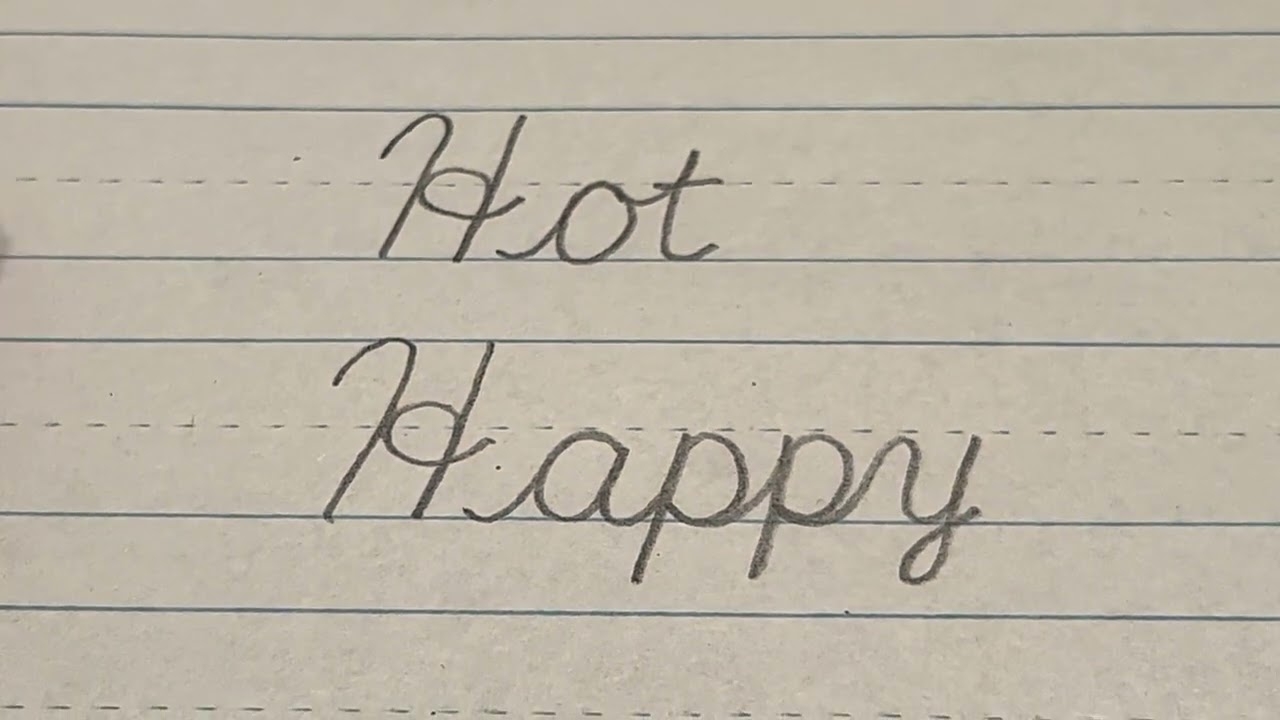 Hot
Happy